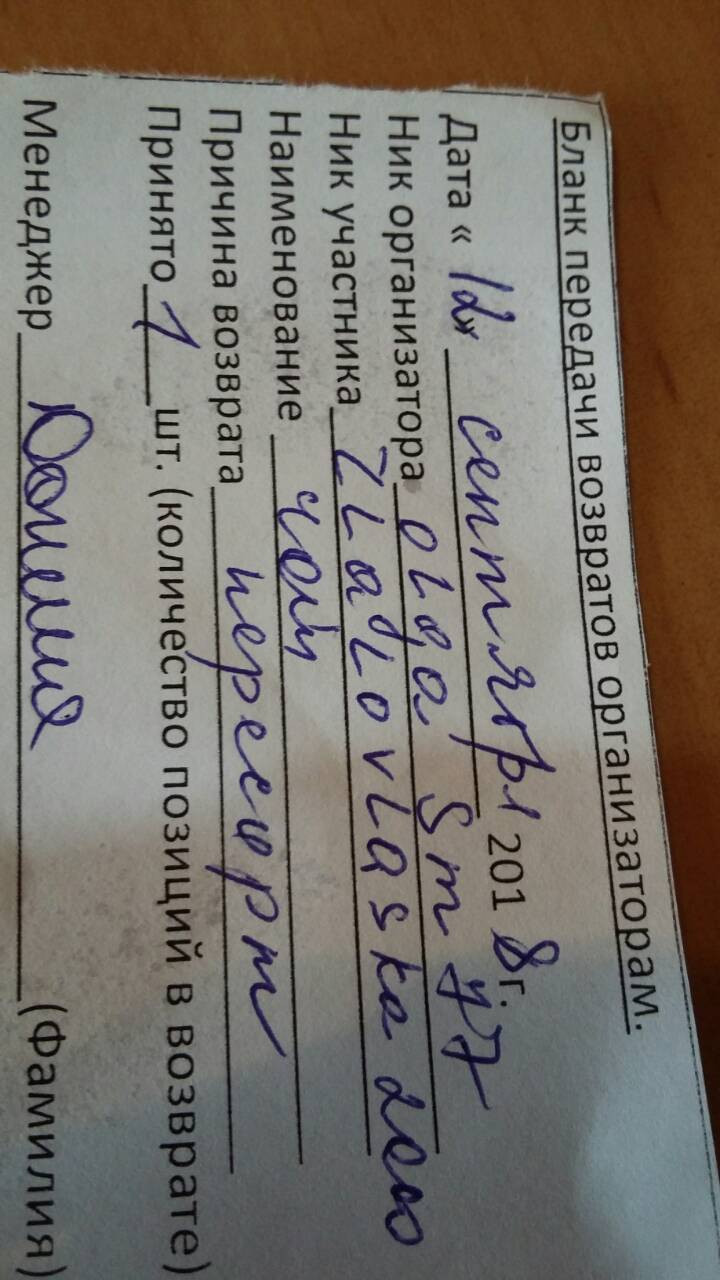 Бланк передачи возвратов организаторам.
Дата « 12» сентября 2018г.
Ник организатора olga sm 77
Ник участника zlatovlaska2000
Наименование чай
Причина возврата пересорт
Принято 1 шт. (количество позиций в возврате)
Менеджер (Фамилия)